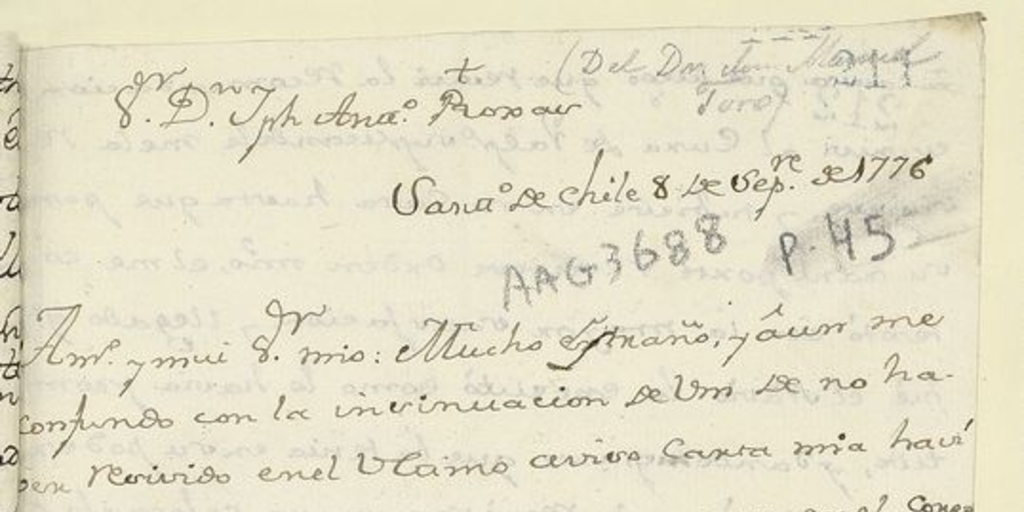 (Del Dr. don Manuel
Toro)
211
+
Sr. D. Jph Anto. Roxas
Santo. de Chile 8 de Sepre. de 1776
AAG3688 P. 45
Amo. y mui Sr. mio: Mucho extraño, y âun me
confundo con la insinuacion de Vm de no ha-
ver resivido en el Vltimo aviso Carta mia havi